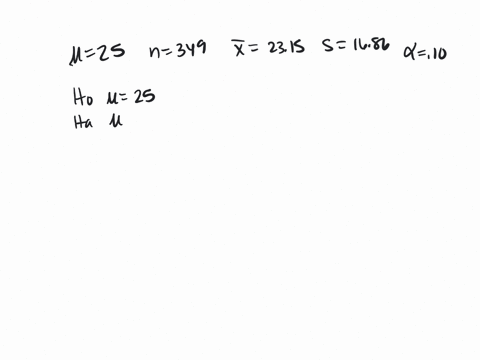 μ=25 n=349 x̄ = 23.15 S=16.86 α=.10
Ho μ=25
Ha μ